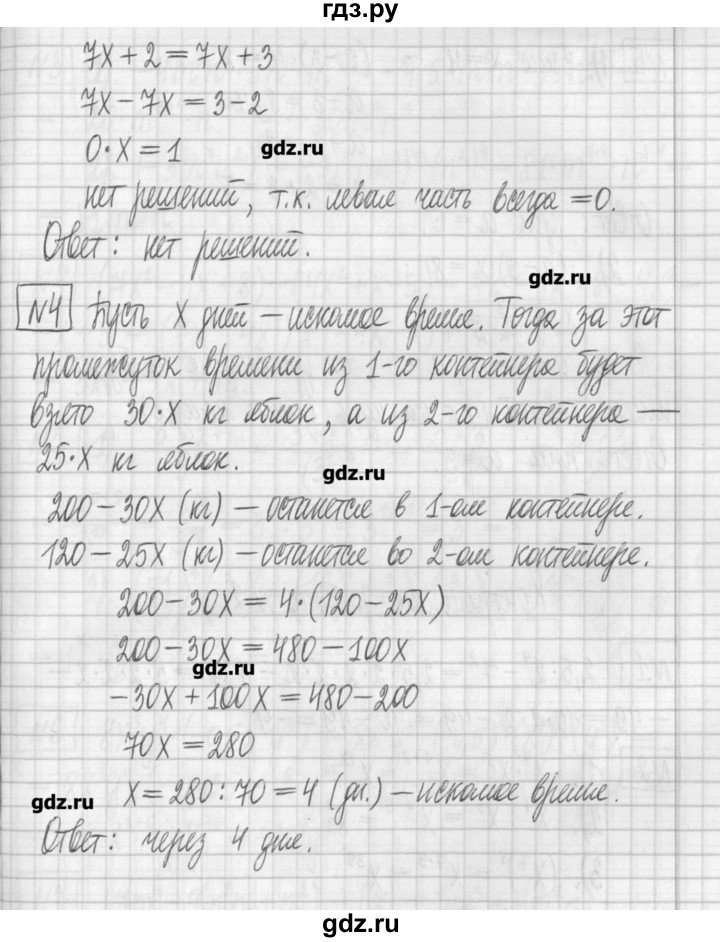 гдз.ру
7x + 2 = 7x + 3
7x − 7x = 3 − 2
0·x = 1 gdz.ru
нет решений, т.к. левая часть всегда = 0.
Ответ: нет решений.
gdz.ru
№4 Пусть x дней — искомое время. Тогда за этот
промежуток времени из 1-го контейнера будет
взято 30·x кг яблок, а из 2-го контейнера —
25·x кг яблок.
gdz.ru
200 − 30x (кг) — останется в 1-ом контейнере.
120 − 25x (кг) — останется во 2-ом контейнере.
200 − 30x = 4·(120 − 25x)
200 − 30x = 480 − 100x
gdz.ru
−30x + 100x = 480 − 200
70x = 280
gdz.ru x = 280 : 70 = 4 (дн.) — искомое время.
Ответ: через 4 дня.
gdz.ru